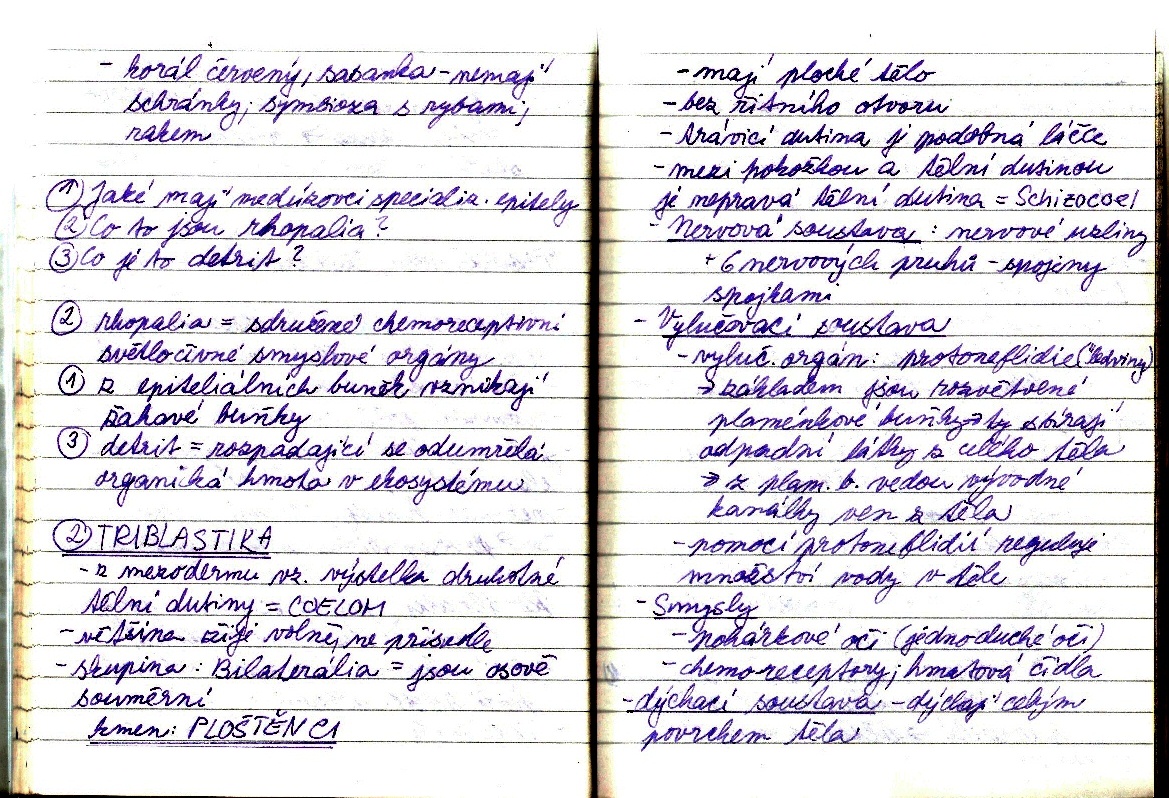 - korál červený, sasanka - nemají
schránky; symbioza s rybami,
rakem
① Jaké mají medúzovci specializ. epitely
② Co to jsou rhopalia?
③ Co je to detrit?
② rhopalia = sdružené chemoreceptivní
světločivné smyslové orgány
① z epiteliálních buněk vznikají
žahavé buňky
③ detrit = rozpadající se odumřelá
organická hmota v ekosystému
② TRIBLASTIKA
- z mezodermu vz. výstelka druhotné
tělní dutiny = COELOM
- většina žije volně, ne přisedle
- skupina: Bilaterália = jsou osově
souměrní
kmen: PLOŠTĚNCI
- mají ploché tělo
- bez řitního otvoru
- trávicí dutina je podobná láčce
- mezi pokožkou a tělní dutinou
je nepravá tělní dutina = Schizocoel
- Nervová soustava: nervové uzliny
+ 6 nervových pruhů - spojeny
spojkami
- Vylučovací soustava
- vyluč. orgán: protonefridie ("ledviny)
→ základem jsou rozvětvené
plaménkové buňky → ty sbírají
odpadní látky z celého těla
→ z plam. b. vedou vývodné
kanálky ven z těla
- pomocí protonefridií reguluje
množství vody v těle
- Smysly
- pohárkové oči (jednoduché oči)
- chemoreceptory; hmatová čidla
- dýchací soustava - dýchají celým
povrchem těla